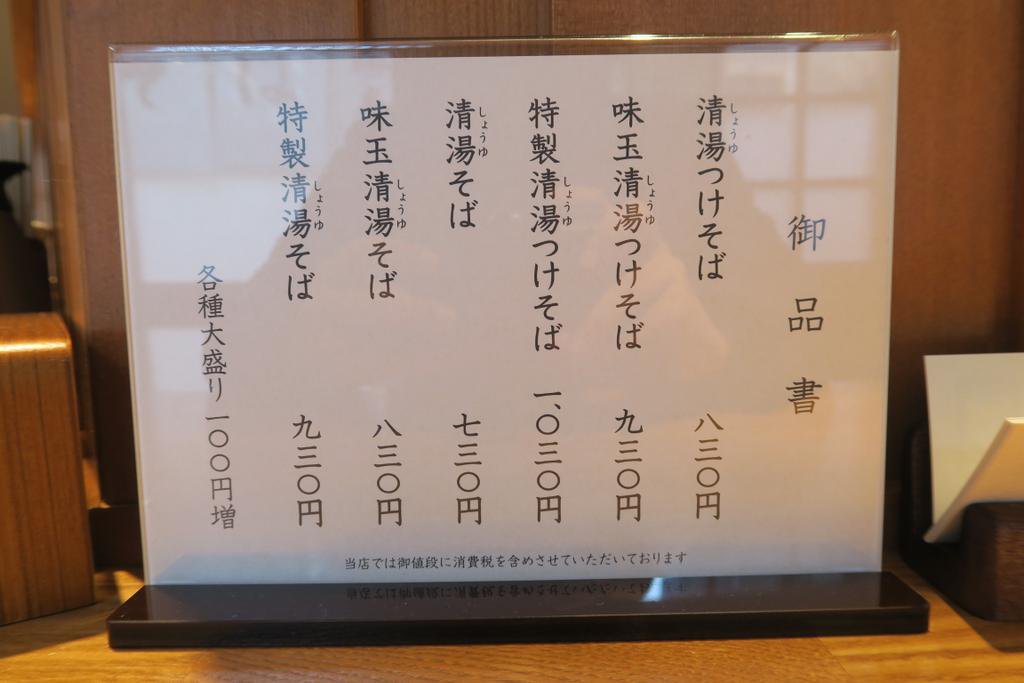 御品書
清湯つけそば 八三〇円
しょうゆ
味玉清湯つけそば 九三〇円
しょうゆ
特製清湯つけそば 一、〇三〇円
しょうゆ
清湯そば 七三〇円
しょうゆ
味玉清湯そば 八三〇円
しょうゆ
特製清湯そば 九三〇円
しょうゆ
各種大盛り一〇〇円増
当店では御値段に消費税を含めさせていただいております